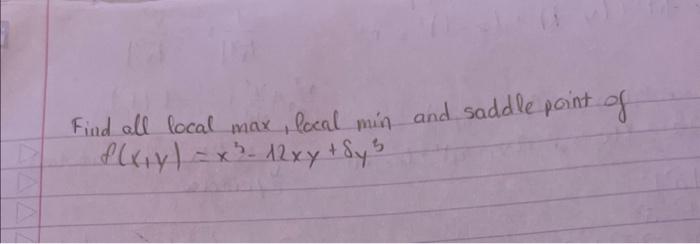 Find all local max, local min and saddle point of
f(x,y) = x³ - 12xy + 8y³